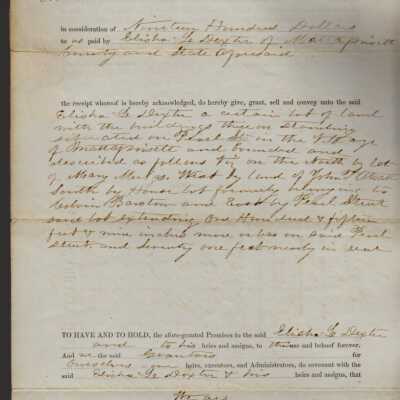 in consideration of Nineteen Hundred Dollars
to us paid by Elisha G Dexter of Mattapoisett
County and State Aforesaid
the receipt whereof is hereby acknowledged, do hereby give, grant, sell and convey unto the said
Elisha G Dexter a certain lot of land
with the buildings thereon standing
situated on Pearl St in the Village
of Mattapoisett and bounded and
described as follows Viz on the North by lot
of Mary West by land of John
South by House lot formerly belonging to
Barstow and East by Pearl Street
said lot extending One Hundred & fifteen
feet & nine inches more or less on said Pearl
Street and Seventy one feet nearly in rear
TO HAVE AND TO HOLD, the afore-granted Premises to the said Elisha G Dexter
and to his heirs and assigns, to their use and behoof forever.
And we the said Grantors for
Ourselves our heirs, executors, and Administrators, do covenant with the
said Elisha G Dexter & his heirs and assigns, that
We are